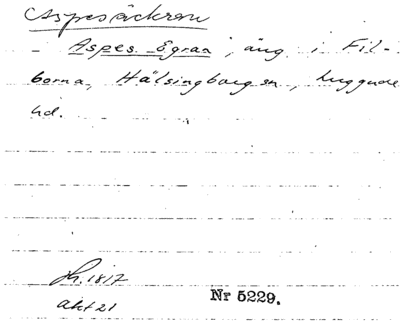 Aspesäckran
- Aspes Egran, äng i Fil-
borna, Hälsingborgs sn, Luggude
hd.
1817
akt 21
Nr 5229.